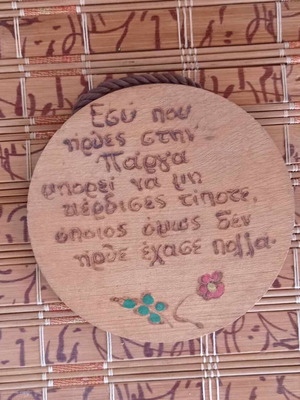 Εσύ που
ήρθες στην
Πάργα
μπορεί να μη
κέρδισες τίποτε,
όποιος όμως δέν
ήρθε έχασε πολλά.